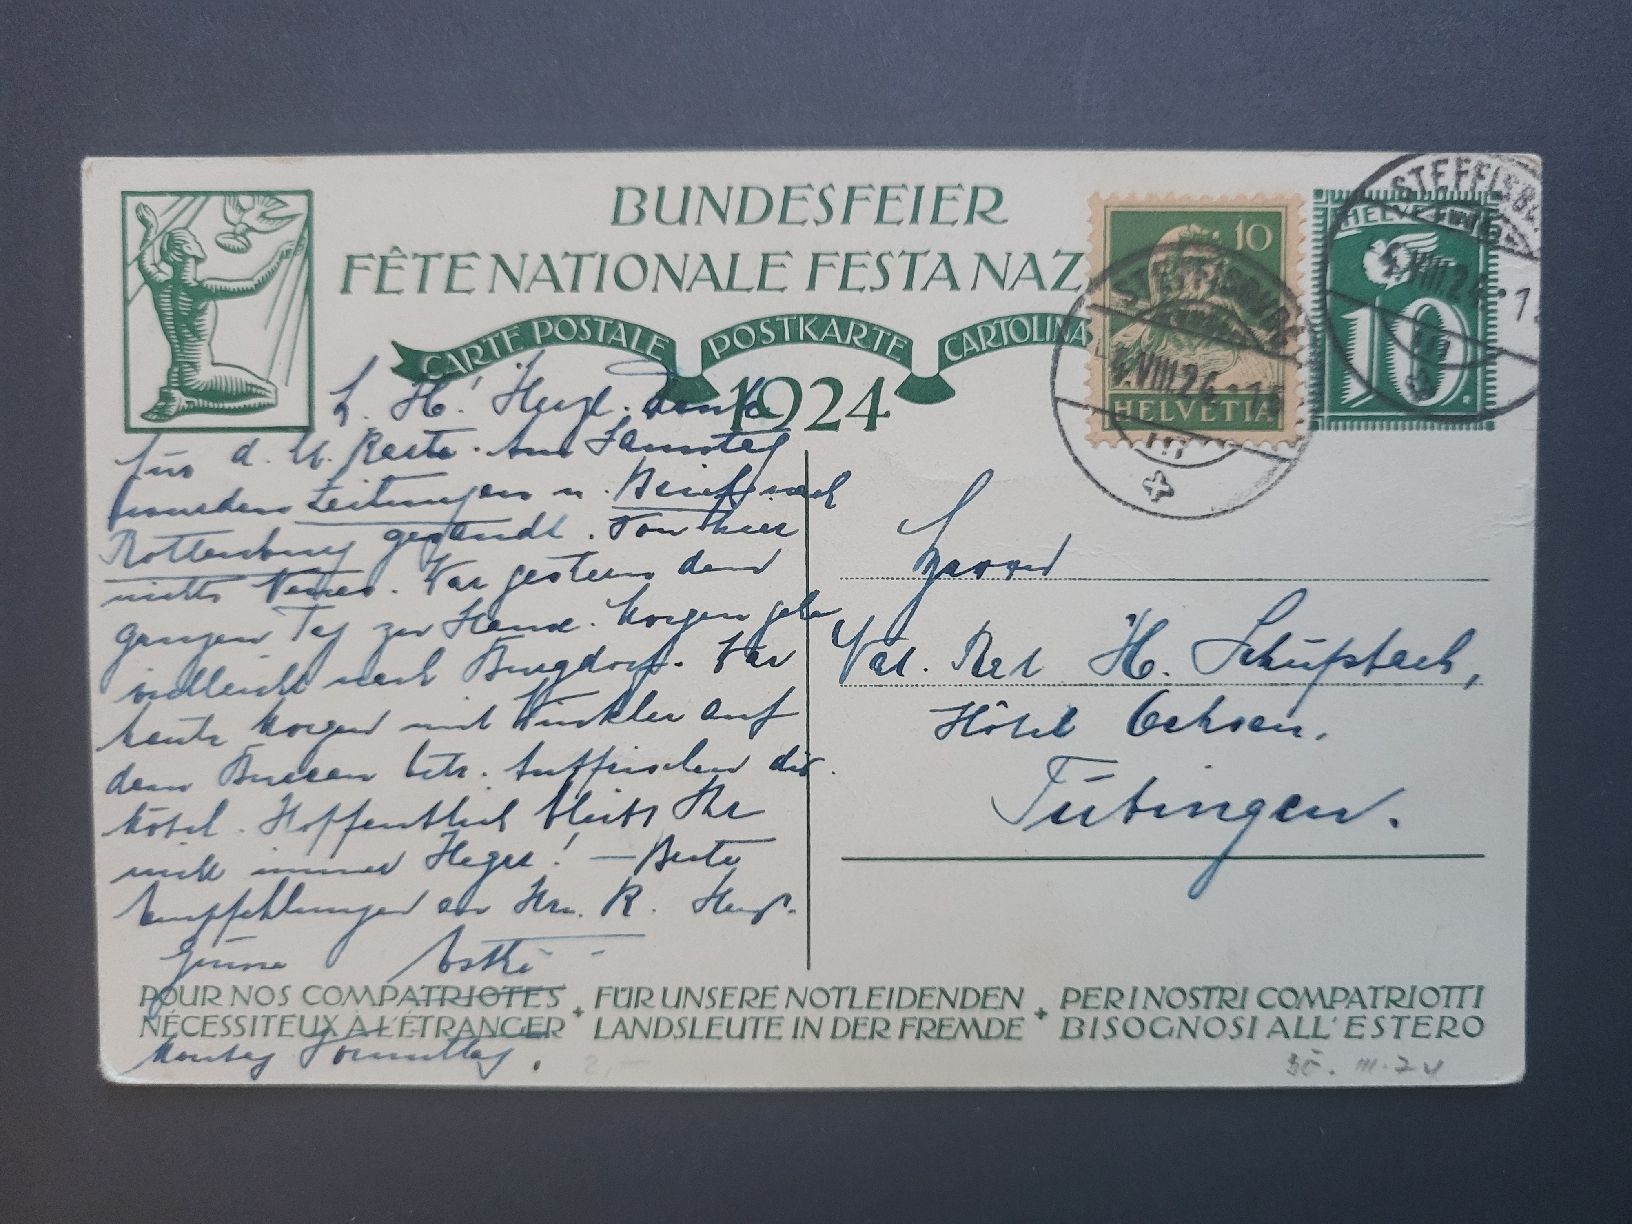 BUNDESFEIER
FÊTE NATIONALE FESTA NAZ
CARTE POSTALE POSTKARTE CARTOLINA
1924
10
HELVETIA
HELVETIA
10
STEFFISBURG
VIII.24
STEFFISBURG
VIII.24
L. H! Herzl. Dank
für d. Karte. Am Samstag
wurden Zeitungen u. Brief nach
Rottenburg gesandt. Von hier
nichts Neues. War gestern den
ganzen Tag zu Hause. Morgen gehe
vielleicht nach Burgdorf. War
heute Morgen mit Winkler auf
dem
Hôtel. Hoffentlich bleibt Ihr
nicht immer
Empfehlungen an Hrn. R. Herzl.
Grüsse
Montag Vormittag.
Herrn
H. Schüpbach,
Hôtel Ochsen,
Tübingen.
POUR NOS COMPATRIOTES
NÉCESSITEUX À L'ÉTRANGER
+ FÜR UNSERE NOTLEIDENDEN
LANDSLEUTE IN DER FREMDE
+ PER I NOSTRI COMPATRIOTTI
BISOGNOSI ALL'ESTERO
2,–